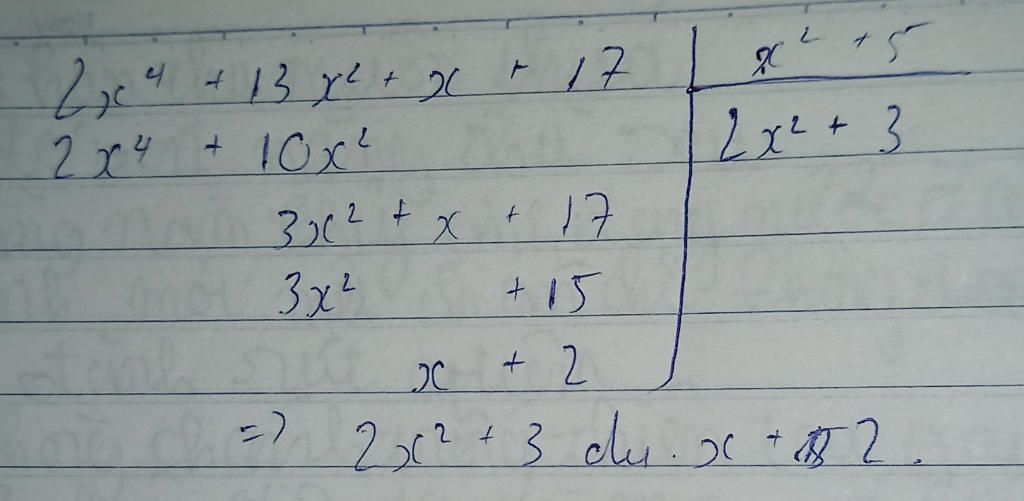 2x⁴ + 13x² + x + 17 | x² + 5
2x⁴ + 10x² | 2x² + 3
3x² + x + 17
3x² + 15
x + 2
=> 2x² + 3 dư. x + 2.